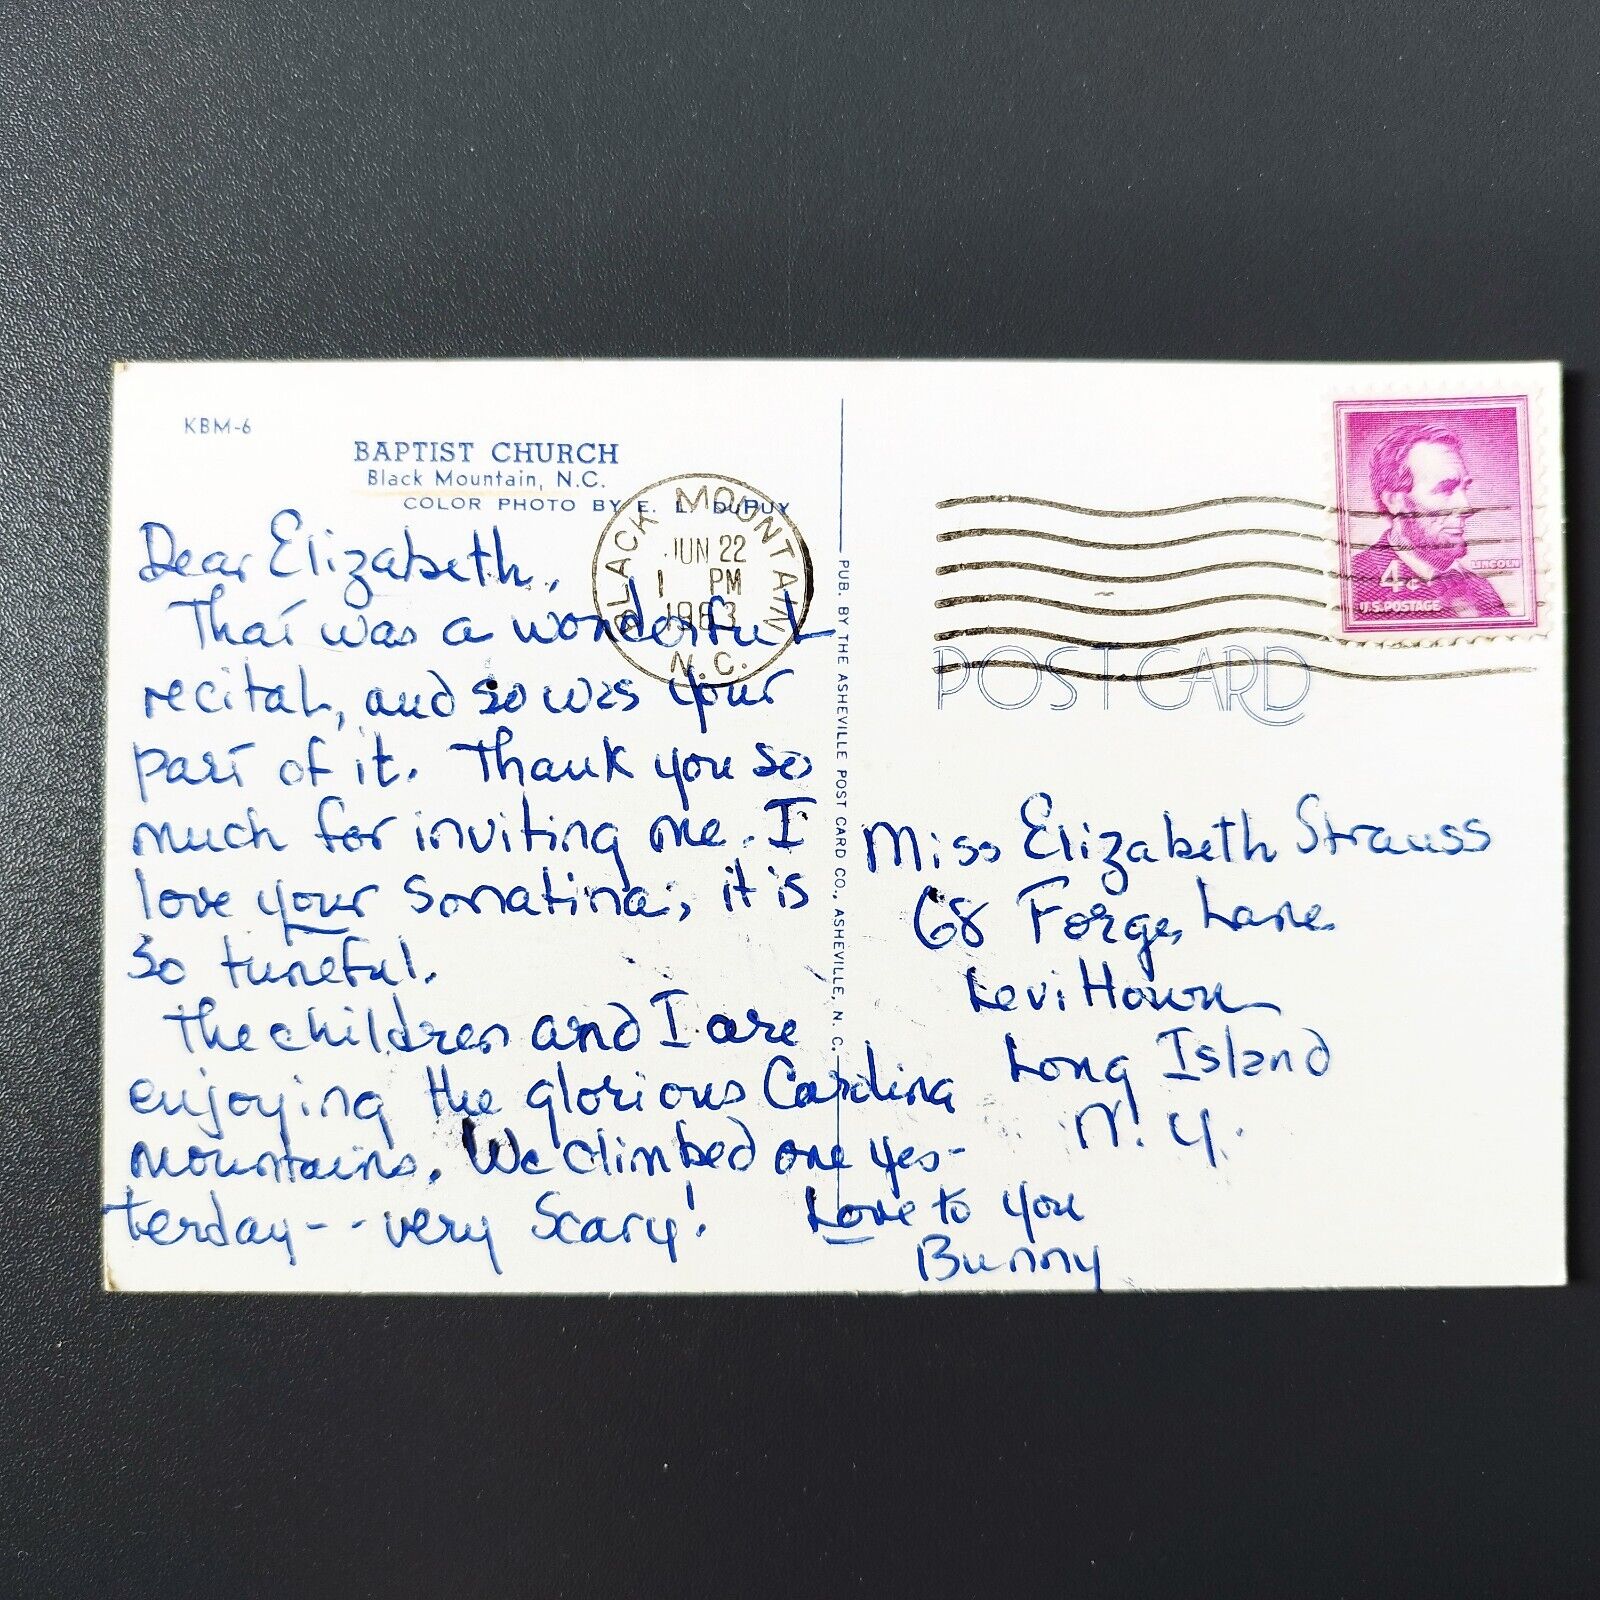 KBM-6
BAPTIST CHURCH
Black Mountain, N.C.
COLOR PHOTO BY E. L. DuPUY
BLACK MOUNTAIN
JUN 22
1 PM
1963
N.C.
Dear Elizabeth,
That was a wonderful
recital, and so was your
part of it. Thank you so
much for inviting me. I
love your Sonatina; it is
so tuneful.
The children and I are
enjoying the glorious Carolina
mountains. We climbed one yes-
terday-- very Scary!
Love to you
Bunny
PUB. BY THE ASHEVILLE POST CARD CO., ASHEVILLE, N. C.
LINCOLN
4¢
U.S. POSTAGE
POST CARD
Miss Elizabeth Strauss
68 Forge Lane
Levi Town
Long Island
N. Y.